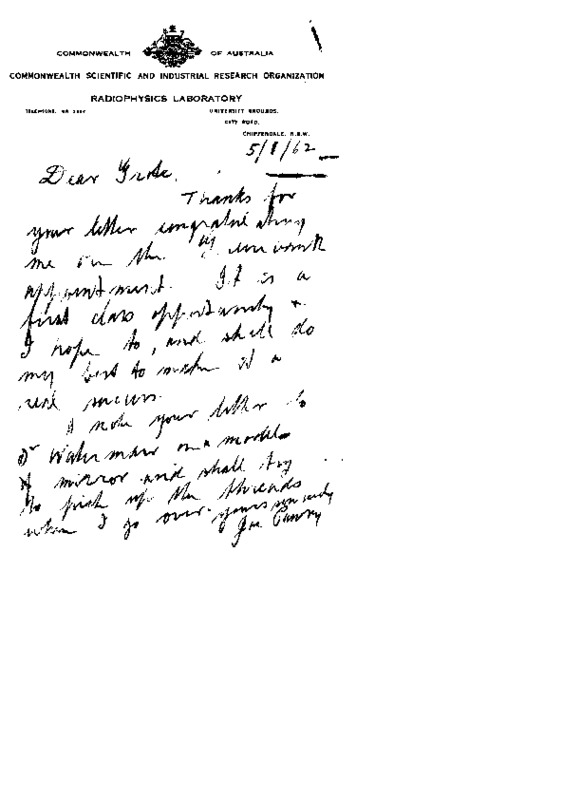 COMMONWEALTH OF AUSTRALIA
COMMONWEALTH SCIENTIFIC AND INDUSTRIAL RESEARCH ORGANIZATION
RADIOPHYSICS LABORATORY
UNIVERSITY GROUNDS,
CITY ROAD,
CHIPPENDALE, N.S.W.
5/8/62
Dear Grote,
Thanks for
your letter congratulating
me on the
appointment. It is a
first class opportunity &
I hope to, and shall do
my best to make it a
real success.
I note your letter to
Dr Waterman on a model
of mirror and shall try
to pick up the threads
when I go over. Yours sincerely
Joe Pawsey